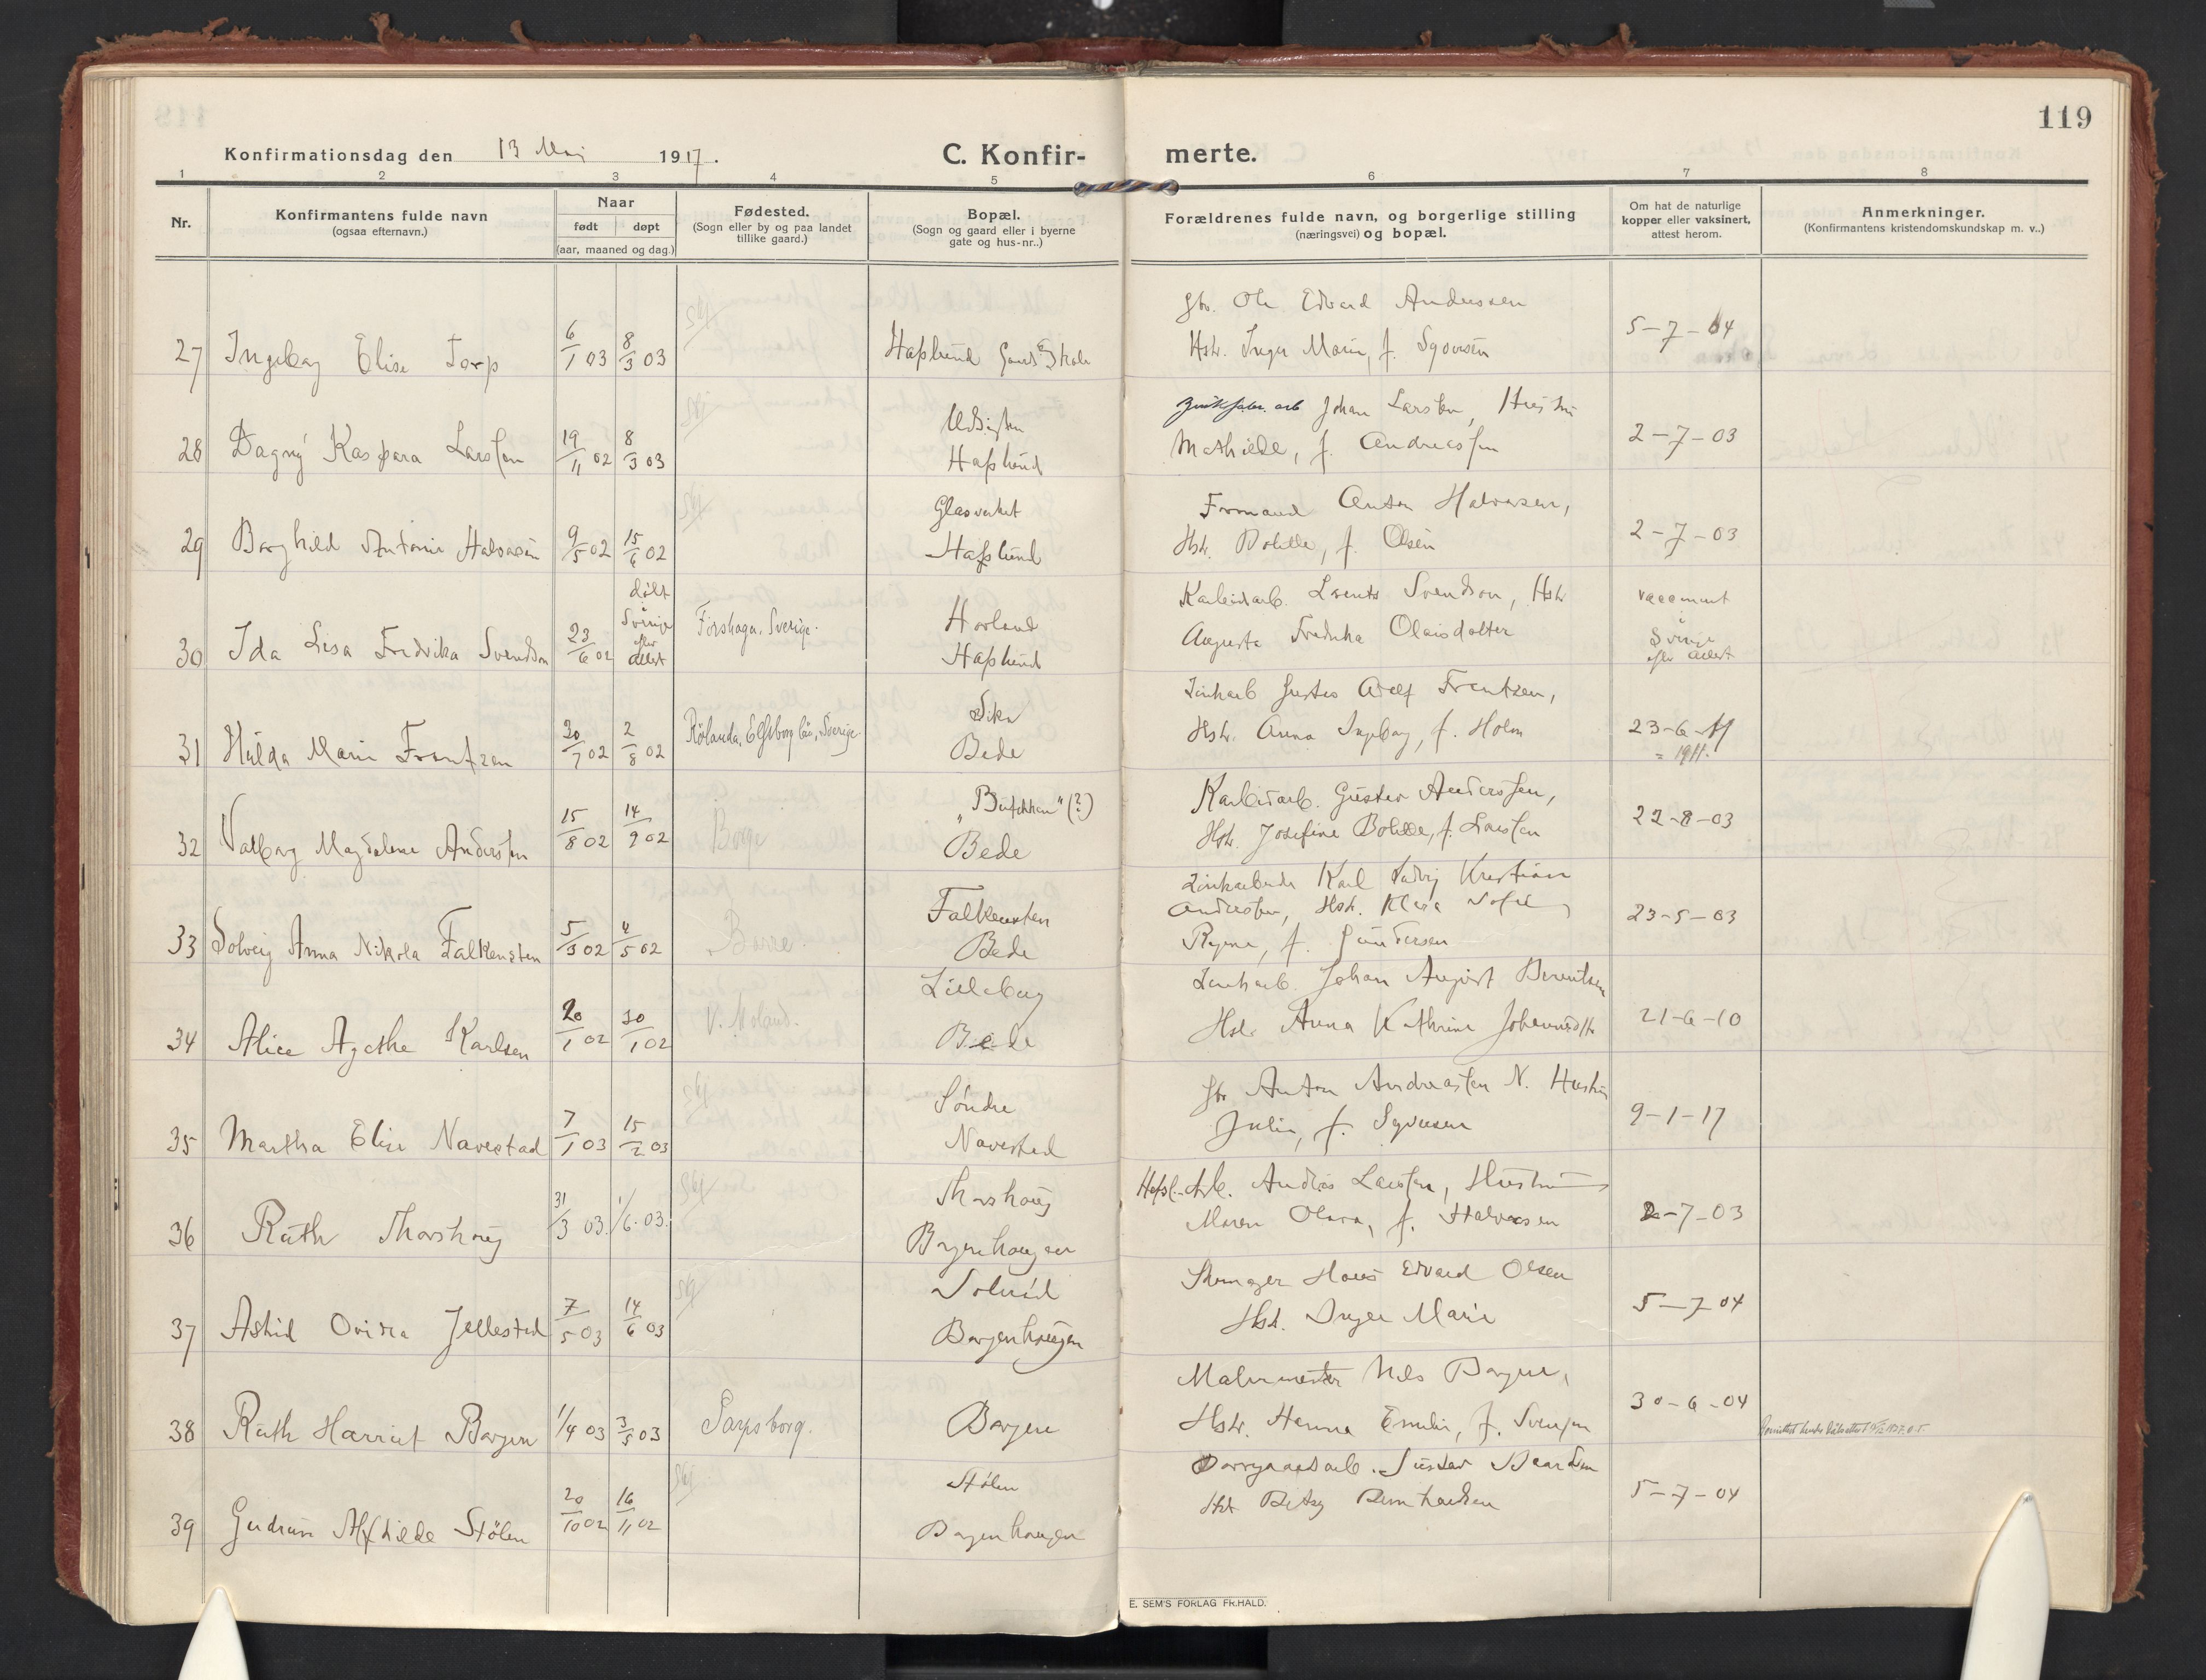 119
Konfirmationsdag den 13 Mai 1917.
C. Konfir- merte.
1 2 3 4 5 6 7 8
Nr.
Konfirmantens fulde navn
(ogsaa efternavn.)
Naar
født døpt
(aar, maaned og dag.)
Fødested.
(Sogn eller by og paa landet
tillike gaard.)
Bopæl.
(Sogn og gaard eller i byerne
gate og hus-nr..)
Forældrenes fulde navn, og borgerlige stilling
(næringsvei) og bopæl.
Om hat de naturlige
kopper eller vaksinert,
attest herom.
Anmerkninger.
(Konfirmantens kristendomskundskap m. v..)
Gbr. Ole Edvard Anderssen
27 Ingeborg Elise Torp 6/1 03 8/3 03 Hafslund Hstr. Inger Marie, f. 5-7-04
Johan Larsen, Hustru
28 Dagny Kaspara Larssen 19/11 02 8/3 03 Hafslund Mathilde, f. Andreassen 2-7-03
Glasverket Formand Anton Halvorsen,
29 Borghild Antonie Halvorsen 9/5 02 15/6 02 Hafslund Hstr. Bolette, f. Olsen 2-7-03
døbt i Sverige efter attest
30 Ida Lisa Fredrika Svendson 23/6 02 Forshaga, Sverige. Horland Hafslund
Karbidarb. Laurits Svendson, Hstr.
Augusta Fredrika Olaisdotter
i Sverige efter attest
Sinkarb Gustav Adolf Frantzen,
31 Hilda Marie Frantzen 20/7 02 2/8 02 Rölanda, Elfsborg län, Sverige. Bede Hstr. Anna Ingeborg, f. Holm 23-6-11
= 1911.
Karbidarb. Gustav Anderssen,
32 Valborg Magdalene Anderssen 15/8 02 14/9 02 Borge Bede Hstr. Josefine Bolette, f. Larssen 22-8-03
Falkensten Sinkarbeider Karl Ludvig Kristian
33 Solveig Anna Nikola Falkensten 5/3 02 4/5 02 Bede Anderssen, Hstr. Klara Sofie
f. Gundersen 23-5-03
Lilleborg Sinkarb. Johan August Berentsen
34 Alice Agathe Karlsen 20/1 02 30/1 02 V. Moland. Bede Hstr. Anna Kathrine 21-6-10
Søndre Gbr Anton Andreassen N. Hustru
35 Martha Elise Navestad 7/1 03 15/2 03 Navestad Julie, f. Syversen 9-1-17
Thorshaug Hafsl.-Arb. Andreas Larssen, Hustru
36 Ruth Thorshaug 31/3 03. 1/6. 03. Borgenhaugen Maren Olava, f. Halvorsen 2-7-03
Solviid Hans Edvard Olsen
37 Astrid Jellestad 7/5 03 14/6 03 Borgenhaugen Hstr. Inger Marie 5-7-04
Malermester Nils Borgen,
38 Ruth Harriet Borgen 1/4 03 3/5 03 Sarpsborg. Borgen Hstr. Hanna Emilie, f. Svensen 30-6-04
Stølen Borregaardsarb. Gustav
39 Gudrun Alfhilde Stølen 20/10 02 16/11 02 Borgenhaugen Hstr. Betsy Bernhardsen 5-7-04
E. SEM'S FORLAG FR.HALD.